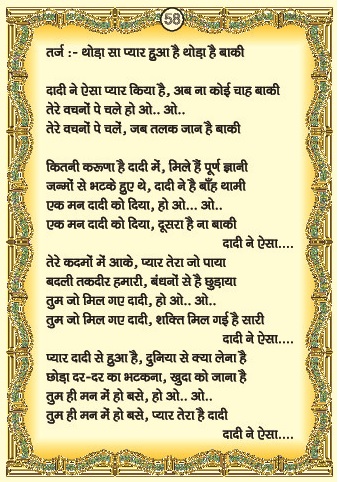 58
तर्ज :- थोड़ा सा प्यार हुआ है थोड़ा है बाकी
दादी ने ऐसा प्यार किया है, अब ना कोई चाह बाकी
तेरे वचनों पे चले हो ओ.. ओ..
तेरे वचनों पे चलें, जब तलक जान है बाकी
कितनी करूणा है दादी में, मिले हैं पूर्ण ज्ञानी
जन्मों से भटके हुए थे, दादी ने है बाँह थामी
एक मन दादी को दिया, हो ओ... ओ..
एक मन दादी को दिया, दूसरा है ना बाकी
दादी ने ऐसा....
तेरे कदमों में आके, प्यार तेरा जो पाया
बदली तकदीर हमारी, बंधनों से है छुड़ाया
तुम जो मिल गए दादी, हो ओ.. ओ..
तुम जो मिल गए दादी, शक्ति मिल गई है सारी
दादी ने ऐसा....
प्यार दादी से हुआ है, दुनिया से क्या लेना है
छोड़ा दर-दर का भटकना, खुदा को जाना है
तुम ही मन में हो बसे, हो ओ.. ओ..
तुम ही मन में हो बसे, प्यार तेरा है दादी
दादी ने ऐसा....